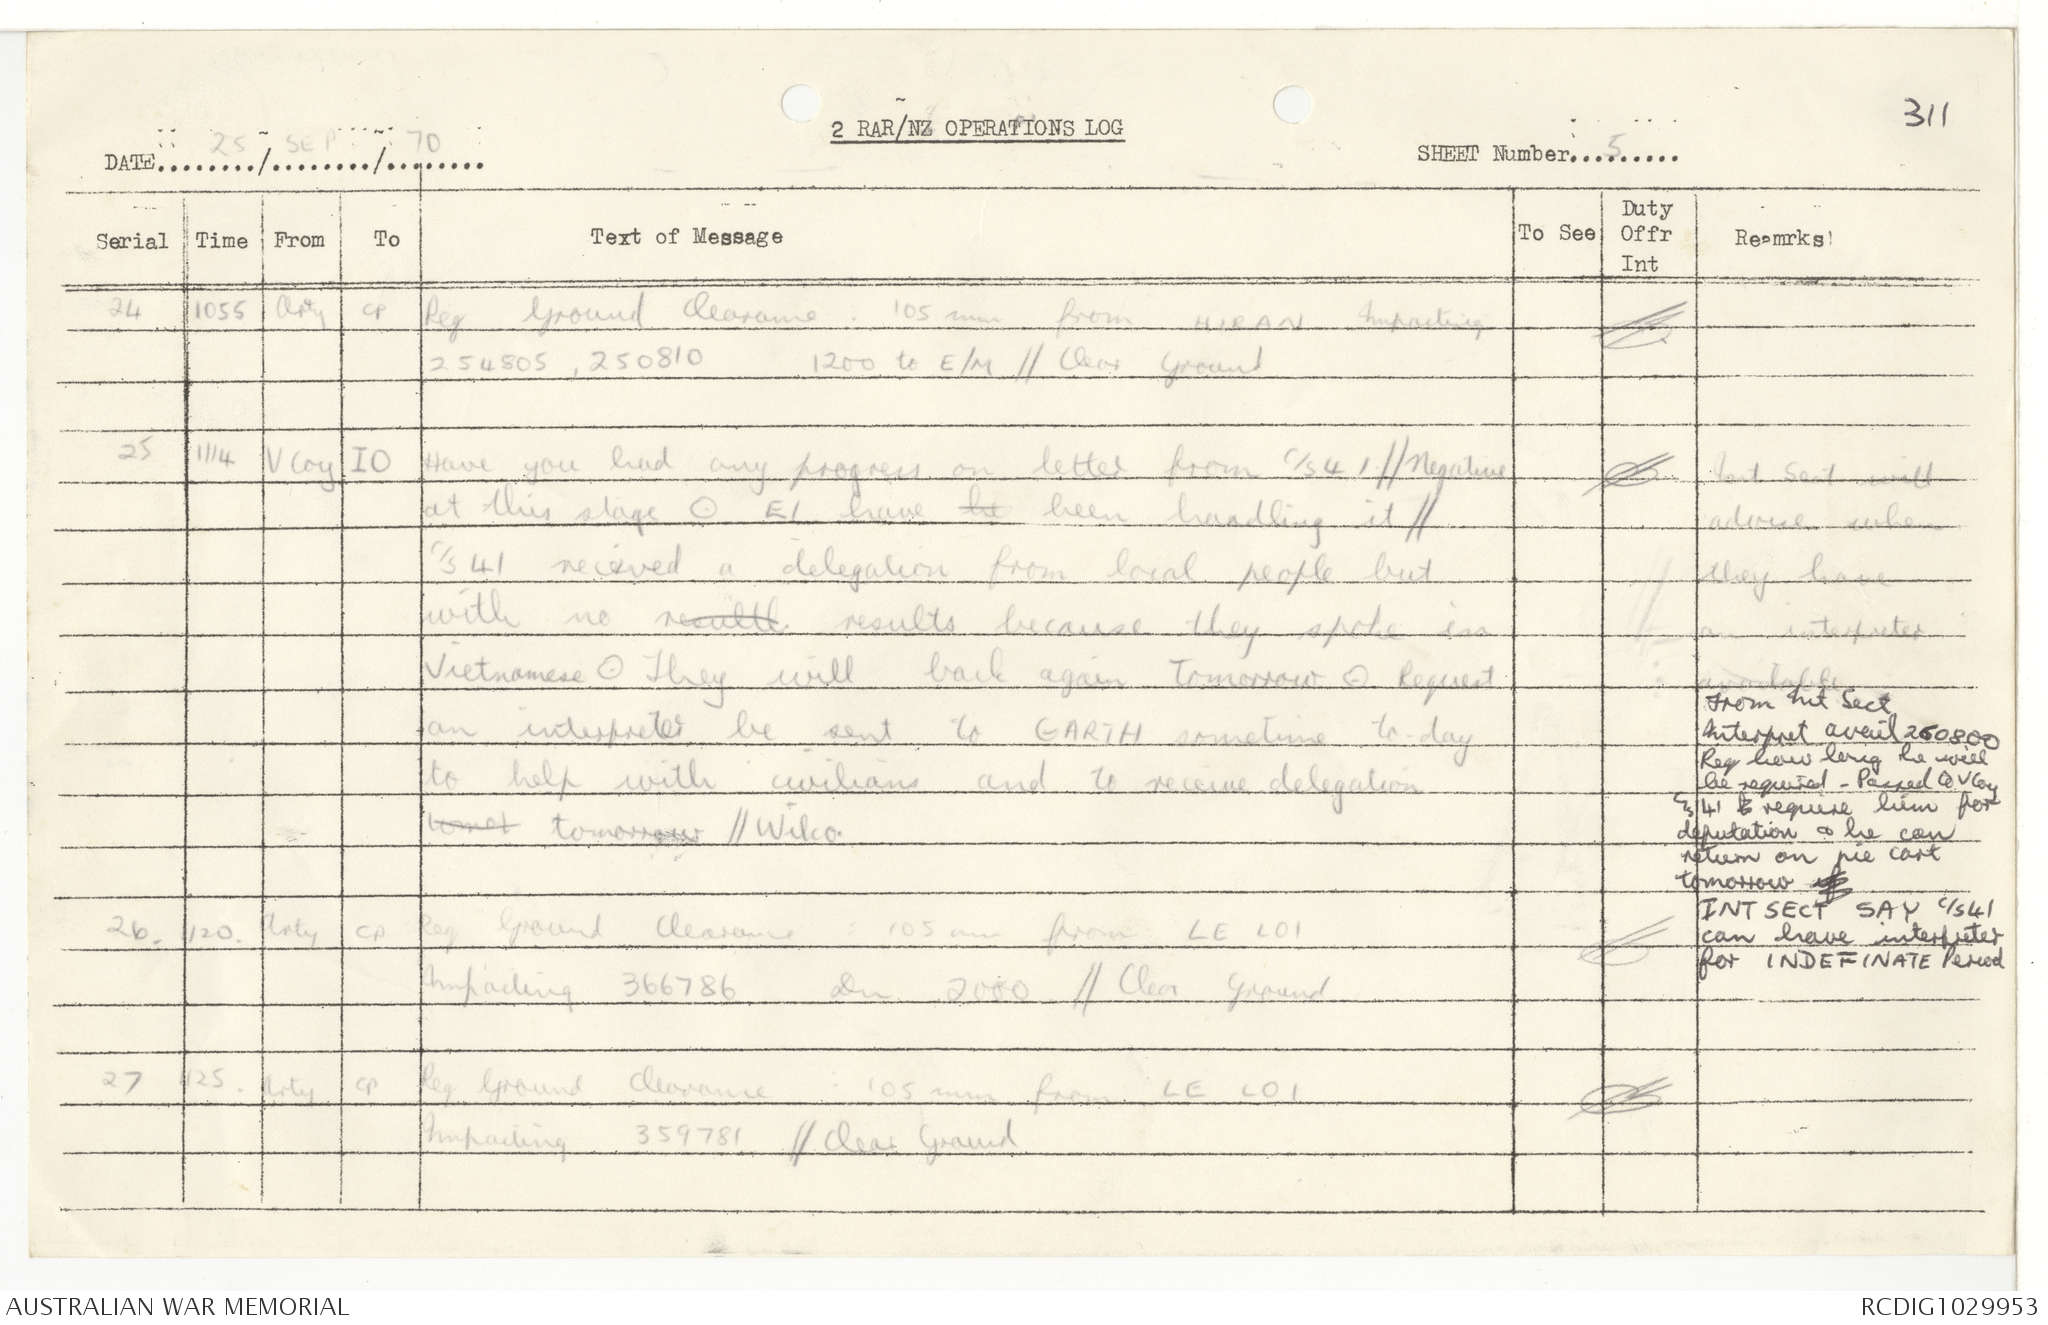 311
2 RAR/NZ OPERATIONS LOG
DATE 25 / SEP / 70
SHEET Number 5
Serial Time From To Text of Message To See Duty Offr Int Remarks
24 1055 Arty CP Req Ground Clearance : 105 mm from HIRAN Impacting
254805, 250810 1200 to E/M // Clear Ground
25 1114 V Coy IO Have you had any progress on letter from C/S 41 // Negative
at this stage ⊙ E1 have been handling it //
C/S 41 recieved a delegation from local people but
with no results results because they spoke in
Vietnamese ⊙ They will back again tomorrow ⊙ Request
an interpreter be sent to GARTH sometime to-day
to help with civilians and to receive delegation
tomorrow // Wilco.
Int Sect will
advise when
they have
an interpreter
available
From Int Sect
Interpret avail 260800
Req how long he will
be required - Passed to V Coy
C/S 41 require him for
deputation & he can
return on pie cart
tomorrow
INT SECT SAY C/S 41
can have interpreter
for INDEFINATE Period
26. 1120. Arty CP Req Ground Clearance : 105 mm from LE LOI
Impacting 366786 2000 // Clear Ground
27 1125. Arty CP Req Ground Clearance : 105 mm from LE LOI
Impacting 359781 // Clear Ground
AUSTRALIAN WAR MEMORIAL
RCDIG1029953